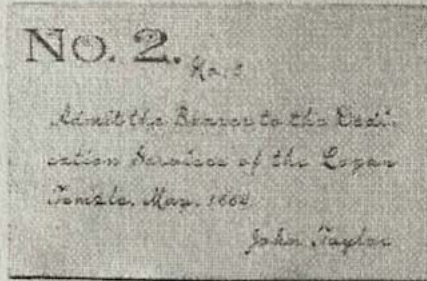 No. 2.
No. 2
Admit the Bearer to the Dedi-
cation Services of the Logan
Temple, May, 1884
John Taylor